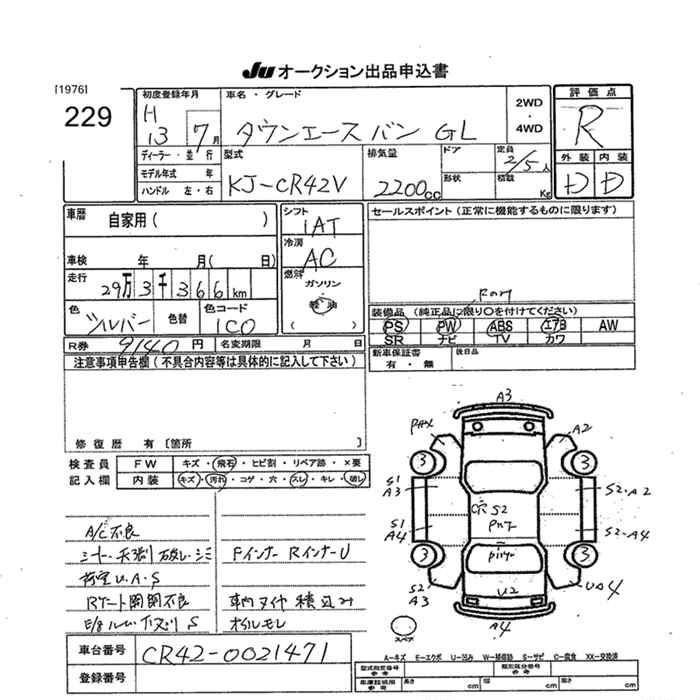 JU オークション出品申込書
[1976]
229
初度登録年月
H
13 7月
ディーラー・並行
モデル年式 年
ハンドル 左・右
車名・グレード
タウンエースバン GL
2WD
・
4WD
型式
KJ-CR42V
排気量
2200cc
ドア
形状
定員
2/5人
積載
Kg
評価点
R
外装 内装
D D
車歴
自家用( )
車検 年 月( 日)
走行
29万3千366km
色
シルバー
色替
色コード
1C0
シフト
IAT
冷房
AC
燃料
ガソリン
軽油
( )
セールスポイント(正常に機能するものに限ります)
装備品(純正品に限り○を付けてください)
PS PW ABS エアB AW
SR ナビ TV カワ
新車保証書
有・無
後日品
R券 9140円
名変期限 月 日
注意事項申告欄(不具合内容等は具体的に記入して下さい)
修復歴 有[箇所 ]
検査員
記入欄
FW キズ・飛石・ヒビ割・リペア跡・×要
内装 キズ・汚れ・コゲ・穴・スレ・キレ・破し
A/C不良
シート・天張り破し・シミ
荷室U.A.S
Rゲート開閉不良
FインナーRインナーU
車内タイヤ積込み
オイルモレ
A3
A2
3
3
S1
A3
S2・A2
穴 S2
S1
A4
S2・A4
3
3
S2
A3
U2
UA4
A4
スペア
A―キズ M―エクボ U―凹み W―補修跡 S―サビ C―腐食 XX―交換済
車台番号 CR42-0021471
登録番号
型式指定番号
参考
類別区分番号
参考
長さ cm
幅 cm
高さ cm